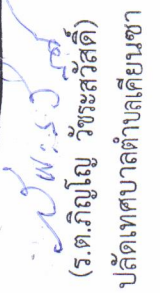 (ร.ต.ภิญโญ วัชระสวัสดิ์)
ปลัดเทศบาลตำบลเคียนซา